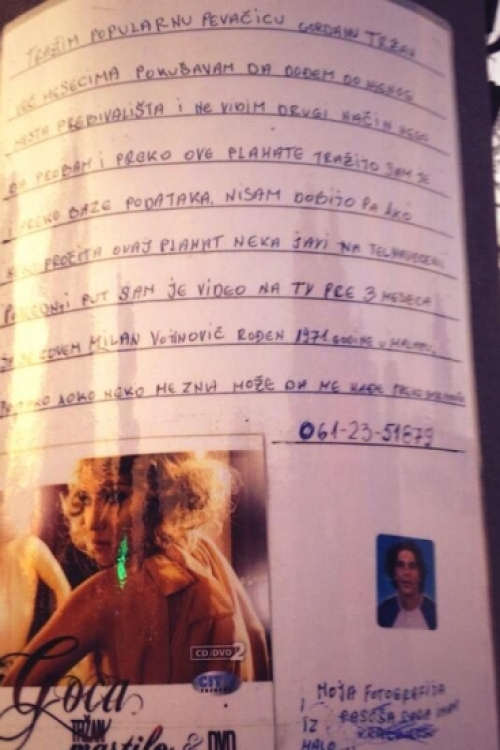 TRAŽIM POPULARNU PEVAČICU GORDANU TRŽAN
VEĆ MESECIMA POKUŠAVAM DA DOĐEM DO NJENOG
MESTA PREBIVALIŠTA I NE VIDIM DRUGI NAČIN NEGO
DA PROBAM I PREKO OVE PLAKATE TRAŽIJO SAM JE
I PREKO BAZE PODATAKA, NISAM DOBIJO PA AKO
PROČITA OVAJ PLAKAT NEKA JAVI NA TEL NAVEDENI
POSLEDNJI PUT SAM JE VIDEO NA TV PRE 3 MESECA
JA SE ZOVEM MILAN VOJINOVIĆ ROĐEN 1971 GODINE U
NEKO ME ZNA MOŽE DA ME NAĐE PREKO
061-23-51879
CD/DVD 2
CITY
RECORDS
Goca
TRŽAN
mastilo & DVD
MOJA FOTOGRAFIJA
I IZ PASOŠA SADA IMAM
MALO